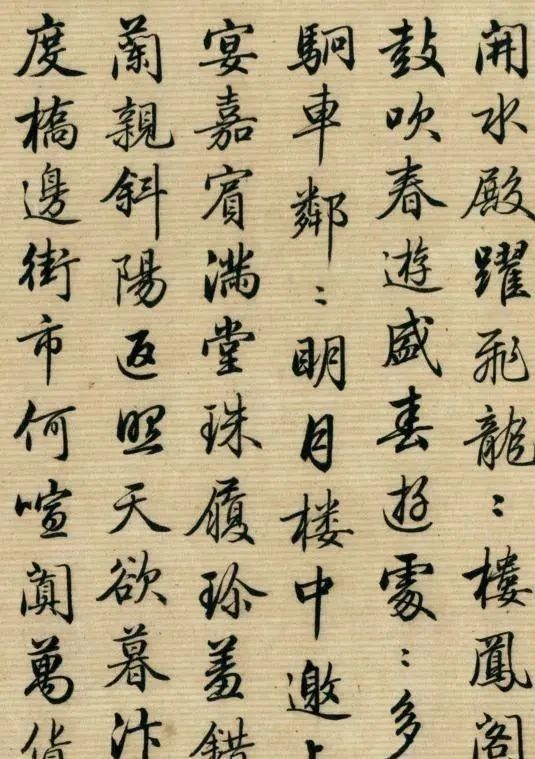 開水殿躍飛龍〻樓鳳閣
鼓吹春遊盛春遊處〻多
駟車鄰〻明月楼中邀上
宴嘉賓滿堂珠履珍羞錯
蘭親斜陽返照天欲暮汴
度橋邊街市何喧闐萬貨